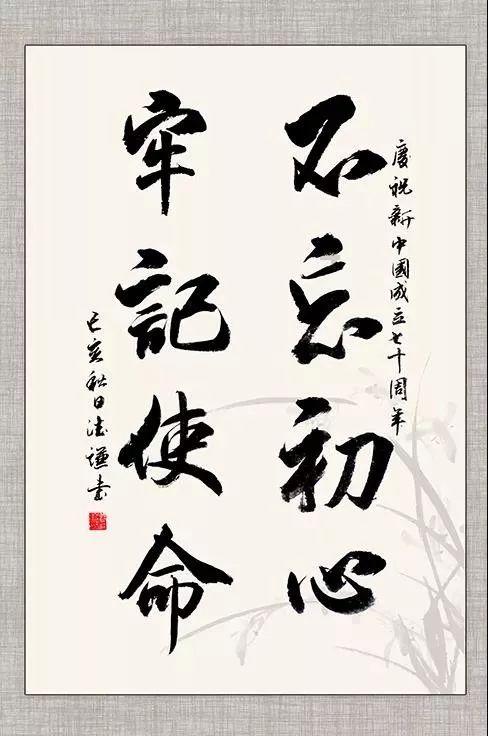 慶祝新中國成立七十周年
不忘初心
牢記使命
己亥秋日法谦书